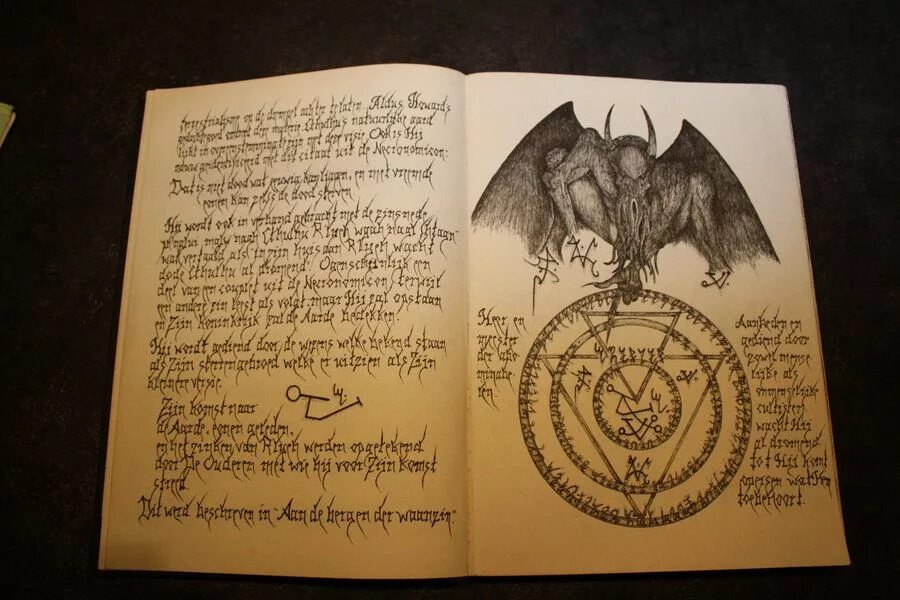 terrestrialisme en de drempel achter te laten. Aldus Howards
gedachtegoed omtrent deze mysterie. Cthulhu's natuurlijke aard
lijkt in overeenstemming te zijn met deze visie. Ook is Hij
nauw geidentificeerd met dit citaat uit de Necronomicon:
Dat is niet dood wat eeuwig kan liggen, en met vreemde
eonen kan zelfs de dood sterven.
Hij wordt ook in verband gebracht met de zinsnede
mglw nafh Cthulhu R'lyeh wgah nagl fhtagn
wat vertaald als in zijn huis aan R'lyeh wacht
dode Cthulhu al dromend. Ogenschijnlijk een
deel van een couplet uit de Necronomicon, terwijl
een ander zin leest als volgt: maar Hij zal opstaan
en Zijn Koninkrijk zal de Aarde bedekken.
Hij wordt gediend door de wezens welke bekend staan
als Zijn sterrengebroed welke er uitzien als Zijn
kleinere versie.
Zijn komst naar
de Aarde, eonen geleden,
en het zinken van R'lyeh werden opgetekend
door De Ouderen met wie hij voor Zijn komst
streed.
Dit werd beschreven in "Aan de bergen der waanzin."
Heer en
meester
der abo-
minatie-
en.
Aanbeden en
gediend door
zowel mense-
lijke als
onmenselijke
cultisten
wacht Hij
al dromend
tot Hij komt
opeisen wat Hem
toebehoort.